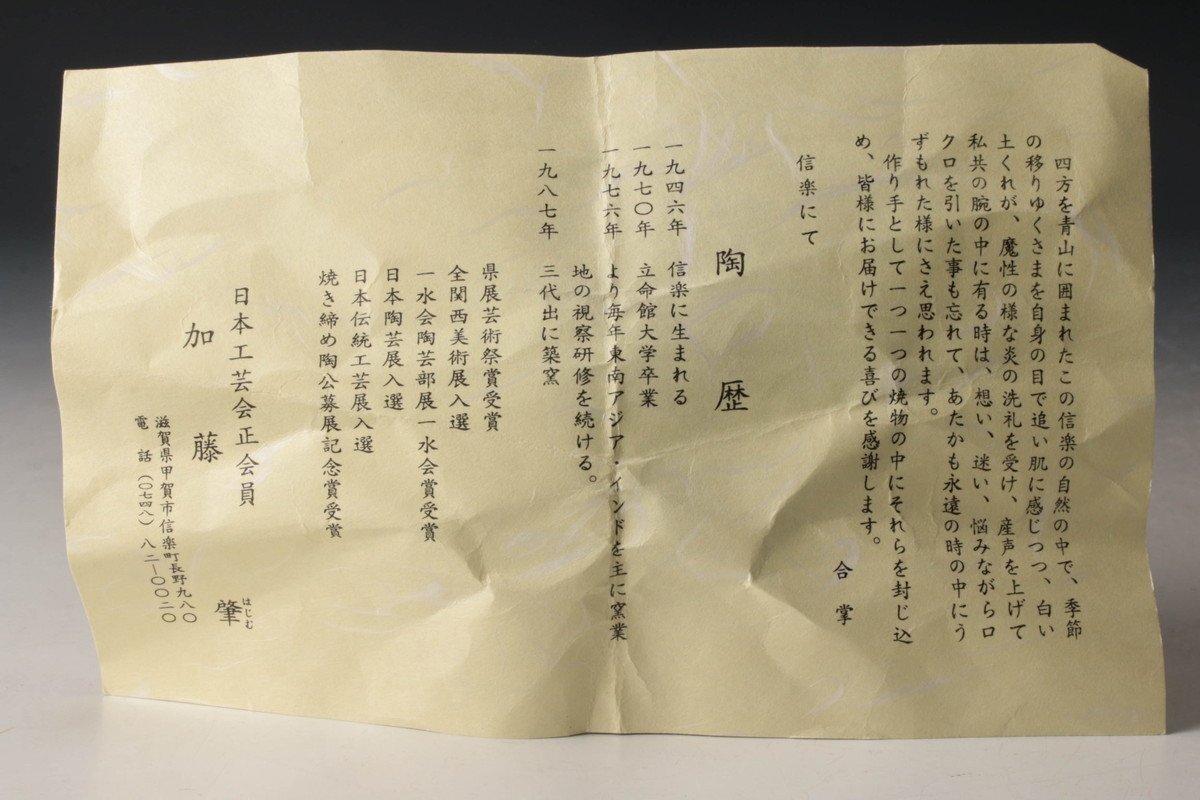 四方を青山に囲まれたこの信楽の自然の中で、季節
の移りゆくさまを自身の目で追い肌に感じつつ、白い
土くれが、魔性の様な炎の洗礼を受け、産声を上げて
私共の腕の中に有る時は、想い、迷い、悩みながらロ
クロを引いた事も忘れて、あたかも永遠の時の中にう
ずもれた様にさえ思われます。
作り手として一つ一つの焼物の中にそれらを封じ込
め、皆様にお届けできる喜びを感謝します。
合掌
信楽にて
陶歴
一九四六年 信楽に生まれる
一九七〇年 立命館大学卒業
一九七六年 より毎年東南アジア・インドを主に窯業
地の視察研修を続ける。
一九八七年 三代出に築窯
県展芸術祭賞受賞
全関西美術展入選
一水会陶芸部展一水会賞受賞
日本陶芸展入選
日本伝統工芸展入選
焼き締め陶公募展記念賞受賞
日本工芸会正会員
加藤肇
はじむ
滋賀県甲賀市信楽町長野九八〇
電話(〇七四八)八二-〇〇二〇